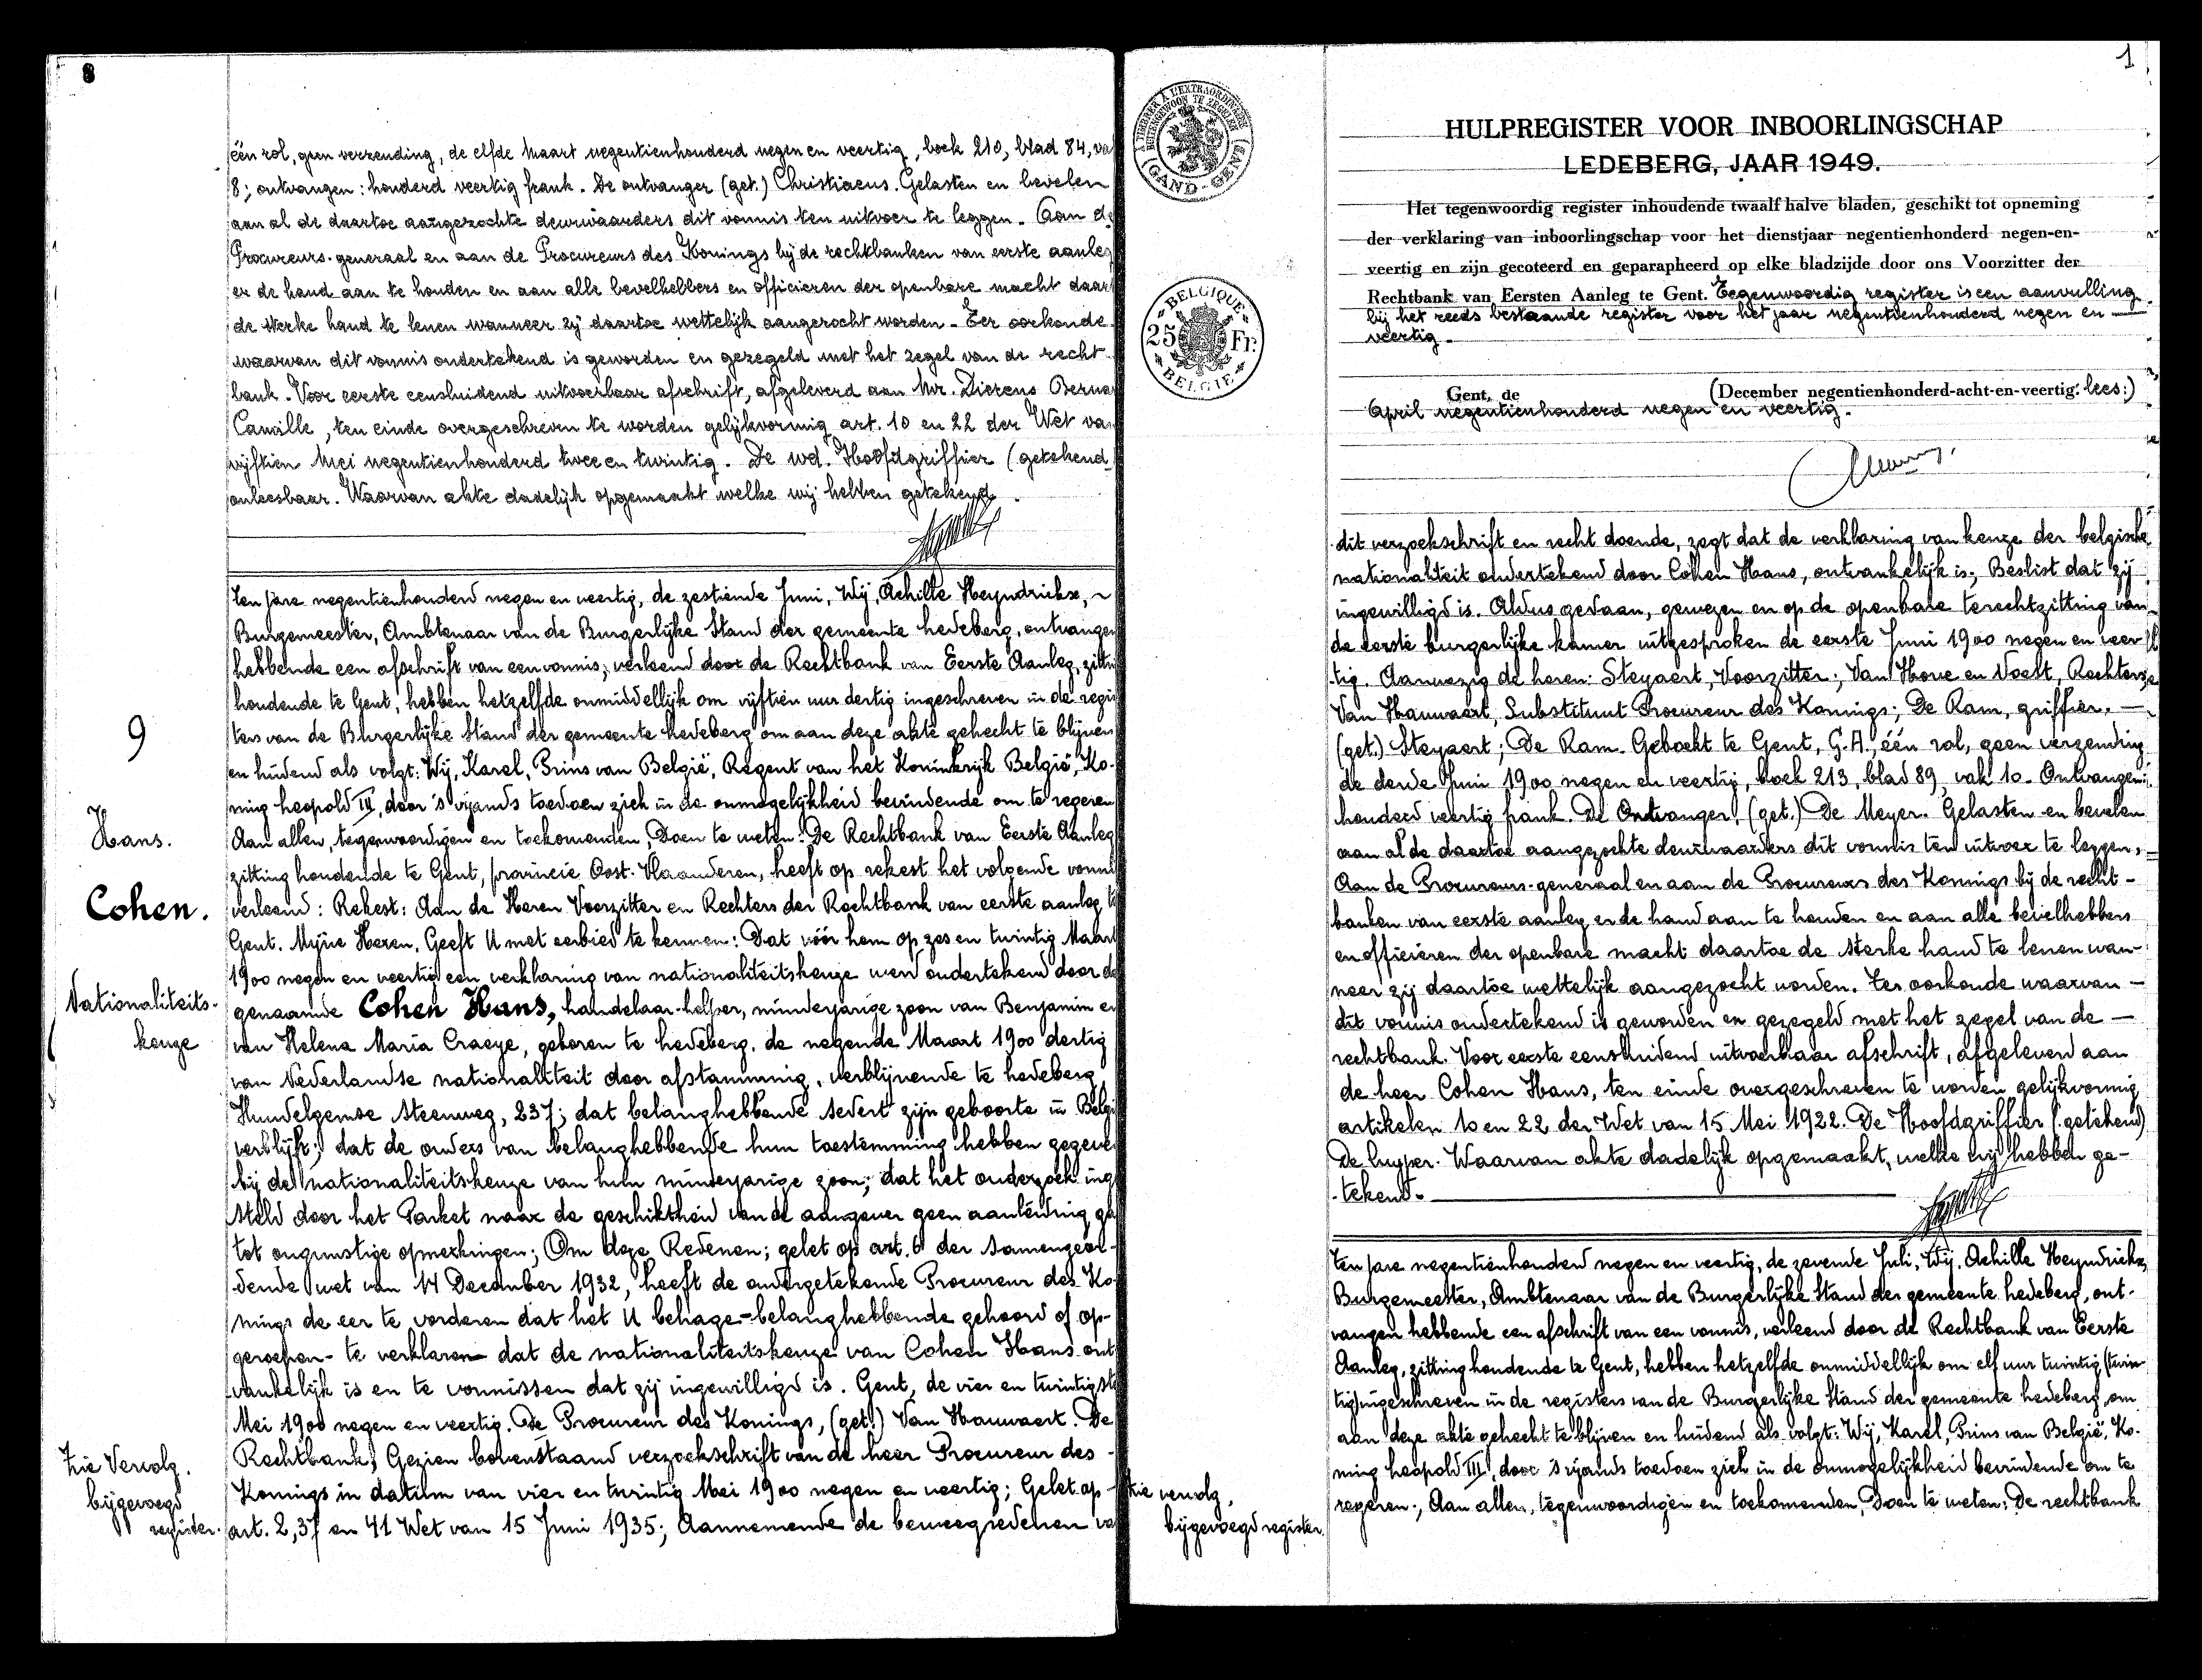 8
één rol, geen verzending, de elfde Maart negentienhonderd negen en veertig, boek 210, blad 84, va
8; ontvangen: honderd veertig frank. De ontvanger (get.) Christiaens. Gelasten en bevelen
aan al de daartoe aangezochte deurwaarders dit vonnis ten uitvoer te leggen. Aan de
Procureurs-generaal en aan de Procureurs des Konings bij de rechtbanken van eerste aanleg
er de hand aan te houden en aan alle bevelhebbers en officieren der openbare macht daar
de sterke hand te lenen wanneer zij daartoe wettelijk aangezocht worden. Ter oorkonde
waarvan dit vonnis ondertekend is geworden en gezegeld met het zegel van de recht-
bank. Voor eerste eensluidend uitvoerbaar afschrift, afgeleverd aan Mr. Dierens Berna
Camille, ten einde overgeschreven te worden gelijkvormig art. 10 en 22 der Wet va
vijftien Mei negentienhonderd twee en twintig. De wd. Hoofdgriffier (getekend
onleesbaar. Waarvan akte dadelijk opgemaakt welke wij hebben getekend.
9
Hans.
Cohen.
Nationaliteits-
keuze
Ten jare negentienhonderd negen en veertig, de zestiende Juni, Wij, Achille Heyndrickx,
Burgemeester, Ambtenaar van de Burgerlijke Stand der gemeente Ledeberg, ontvangen
hebbende een afschrift van een vonnis, verleend door de Rechtbank van Eerste Aanleg, zitti
houdende te Gent, hebben hetzelfde onmiddellijk om vijftien uur dertig ingeschreven in de regis
ters van de Burgerlijke Stand der gemeente Ledeberg om aan deze akte gehecht te blijven
en luidend als volgt: Wij, Karel, Prins van België, Regent van het Koninkrijk België, Ko-
ning Leopold III, door 's vijands toedoen zich in de onmogelijkheid bevindende om te regeren
Aan allen, tegenwoordigen en toekomenden, Doen te weten: De Rechtbank van Eerste Aanleg
zitting houdende te Gent, provincie Oost-Vlaanderen, heeft op rekest het volgende vonni
verleend: Rekest: Aan de Heren Voorzitter en Rechters der Rechtbank van eerste aanleg t
Gent. Mijne Heren, Geeft U met eerbied te kennen: Dat vóór hem op zes en twintig Maart
1900 negen en veertig een verklaring van nationaliteitskeuze werd ondertekend door de
genaamde Cohen Hans, handelaar-helper, minderjarige zoon van Benjamin en
van Helena Maria Craeye, geboren te Ledeberg, de negende Maart 1900 dertig
van Nederlandse nationaliteit door afstamming, verblijvende te Ledeberg
Hundelgemse Steenweg, 237; dat belanghebbende sedert zijn geboorte in Belgi
verblijft; dat de ouders van belanghebbende hun toestemming hebben gegeve
bij de nationaliteitskeuze van hun minderjarige zoon; dat het onderzoek ing
steld door het Parket naar de geschiktheid van de aangever geen aanleiding ga
tot ongunstige opmerkingen; Om deze Redenen; gelet op art. 6 der samengeor-
dende wet van 14 December 1932, heeft de ondergetekende Procureur des Ko-
nings de eer te vorderen dat het U behage - belanghebbende gehoord of op-
geroepen - te verklaren dat de nationaliteitskeuze van Cohen Hans ont
vankelijk is en te vonnissen dat zij ingewilligd is. Gent, de vier en twintigste
Mei 1900 negen en veertig. De Procureur des Konings, (get.) Van Hauwaert. De
Rechtbank, Gezien bovenstaand verzoekschrift van de heer Procureur des
Konings in datum van vier en twintig Mei 1900 negen en veertig; Gelet op
art. 2, 37 en 41 Wet van 15 Juni 1935; Aannemende de beweegredenen va
Zie Vervolg.
bijgevoegd
register.
1
TIMBRER A L'EXTRAORDINAIRE
BUITENGEWOON TE ZEGELEN
(GAND-GENT)
BELGIQUE
25 Fr.
BELGIE
HULPREGISTER VOOR INBOORLINGSCHAP
LEDEBERG, JAAR 1949.
Het tegenwoordig register inhoudende twaalf halve bladen, geschikt tot opneming
der verklaring van inboorlingschap voor het dienstjaar negentienhonderd negen-en-
veertig en zijn gecoteerd en geparapheerd op elke bladzijde door ons Voorzitter der
Rechtbank van Eersten Aanleg te Gent. Tegenwoordig register is een aanvulling
bij het reeds bestaande register voor het jaar negentienhonderd negen en
veertig.
Gent, de (December negentienhonderd-acht-en-veertig. lees:)
April negentienhonderd negen en veertig.
dit verzoekschrift en recht doende, zegt dat de verklaring van keuze der belgische
nationaliteit ondertekend door Cohen Hans, ontvankelijk is; Beslist dat zij
ingewilligd is. Aldus gedaan, gewezen en op de openbare terechtzitting van
de eerste burgerlijke kamer uitgesproken de eerste Juni 1900 negen en veer
tig. Aanwezig de heren: Steyaert, Voorzitter; Van Hove en Voest, Rechters;
Van Hauwaert, Substituut Procureur des Konings; De Ram, griffier.
(get.) Steyaert; De Ram. Geboekt te Gent, G.A., één rol, geen verzending
de derde Juni 1900 negen en veertig, boek 213, blad 89, vak 10. Ontvangen:
honderd veertig frank. De Ontvanger, (get.) De Meyer. Gelasten en bevelen
aan al de daartoe aangezochte deurwaarders dit vonnis ten uitvoer te leggen,
Aan de Procureurs-generaal en aan de Procureurs des Konings bij de recht-
banken van eerste aanleg er de hand aan te houden en aan alle bevelhebbers
en officieren der openbare macht daartoe de sterke hand te lenen wan-
neer zij daartoe wettelijk aangezocht worden. Ter oorkonde waarvan
dit vonnis ondertekend is geworden en gezegeld met het zegel van de
rechtbank. Voor eerste eensluidend uitvoerbaar afschrift, afgeleverd aan
de heer Cohen Hans, ten einde overgeschreven te worden gelijkvormig
artikelen 10 en 22 der Wet van 15 Mei 1922. De Hoofdgriffier (getekend)
De Cuyper. Waarvan akte dadelijk opgemaakt, welke wij hebben ge-
tekend.
Ten jare negentienhonderd negen en veertig, de zevende Juli, Wij, Achille Heyndrickx,
Burgemeester, Ambtenaar van de Burgerlijke Stand der gemeente Ledeberg, ont-
vangen hebbende een afschrift van een vonnis, verleend door de Rechtbank van Eerste
Aanleg, zitting houdende te Gent, hebben hetzelfde onmiddellijk om elf uur twintig (twin-
tig) ingeschreven in de registers van de Burgerlijke Stand der gemeente Ledeberg, om
aan deze akte gehecht te blijven en luidend als volgt: Wij, Karel, Prins van België, Ko-
ning Leopold III, door 's vijands toedoen zich in de onmogelijkheid bevindende om te
regeren; Aan allen, tegenwoordigen en toekomenden, Doen te weten: De rechtbank
Zie vervolg,
bijgevoegd register.